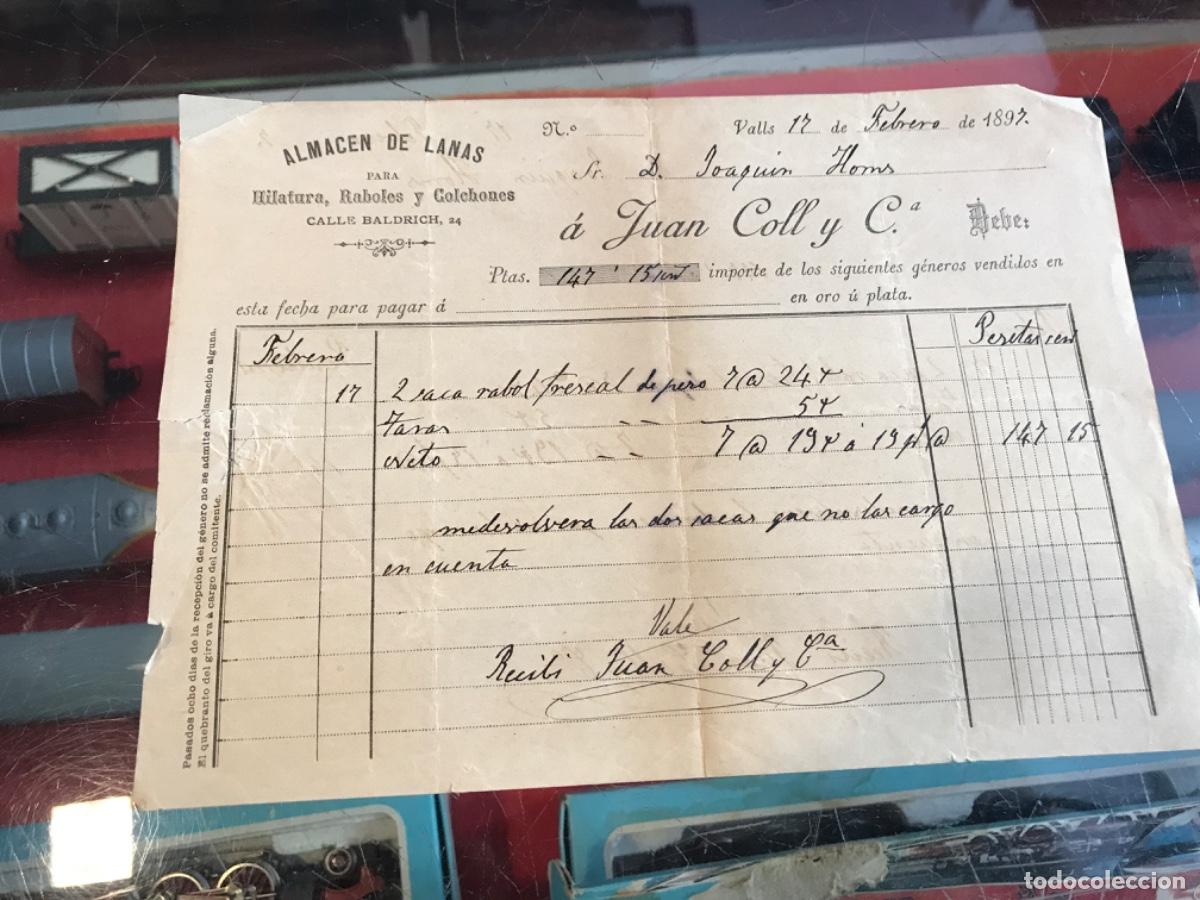 ALMACEN DE LANAS
PARA
Hilatura, Raboles y Colchones
CALLE BALDRICH, 24
N.º
Valls 17 de Febrero de 1897.
Sr. D. Joaquin Homs
á Juan Coll y C.ª Debe:
Ptas. 147 ' 15 cent importe de los siguientes géneros vendidos en
esta fecha para pagar á en oro ú plata.
Febrero Pesetas cent
17 2 saca rabol freseal de peso 7 @ 24
5
Taras
Neto 7 @ 19 á 19 p @ 147 15
medevolvera las dos sacas que no las cargo
en cuenta
Vale
Recibi Juan Coll y Cª
Pasados ocho dias de la recepción del género no se admite reclamación alguna.
El quebranto del giro va á cargo del comitente.
todocoleccion